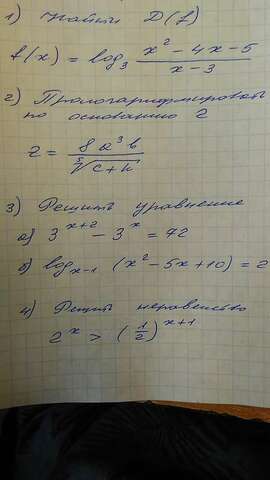 1) Найти D(f)
f(x) = log₃ (x² - 4x - 5)/(x - 3)
2) Прологарифмировать
по основанию 2
z = 8a³b/⁵√(c+k)
3) Решить уравнение
а) 3^(x+2) - 3^x = 72
б) log_(x-1) (x² - 5x + 10) = 2
4) Решить неравенство
2^x > (1/2)^(x+1)